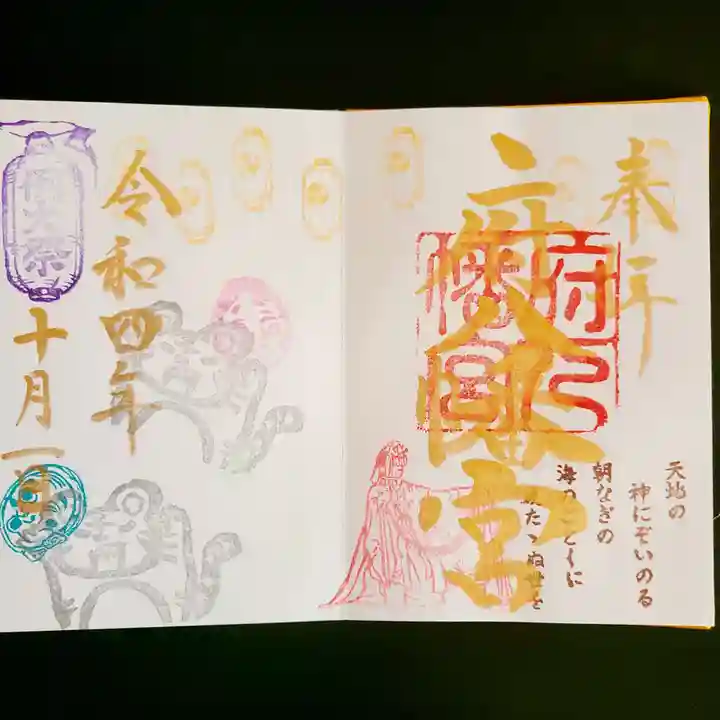 奉拝
府八幡宮
府八
幡宮
天地の
神にぞいのる
朝なぎの
海のごとくに
波たゝぬ世を
令和四年
十月一日